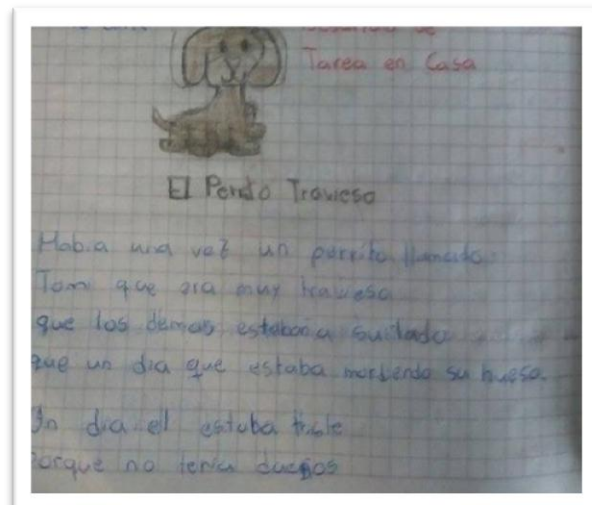 Tarea en Casa
El Perrito Travieso
Habia una vez un perrito llamado
Tomi que era muy travieso
que los demas estaban a su lado
que un dia que estaba mordiendo su hueso.
Un dia el estaba triste
Porque no tenia dueños